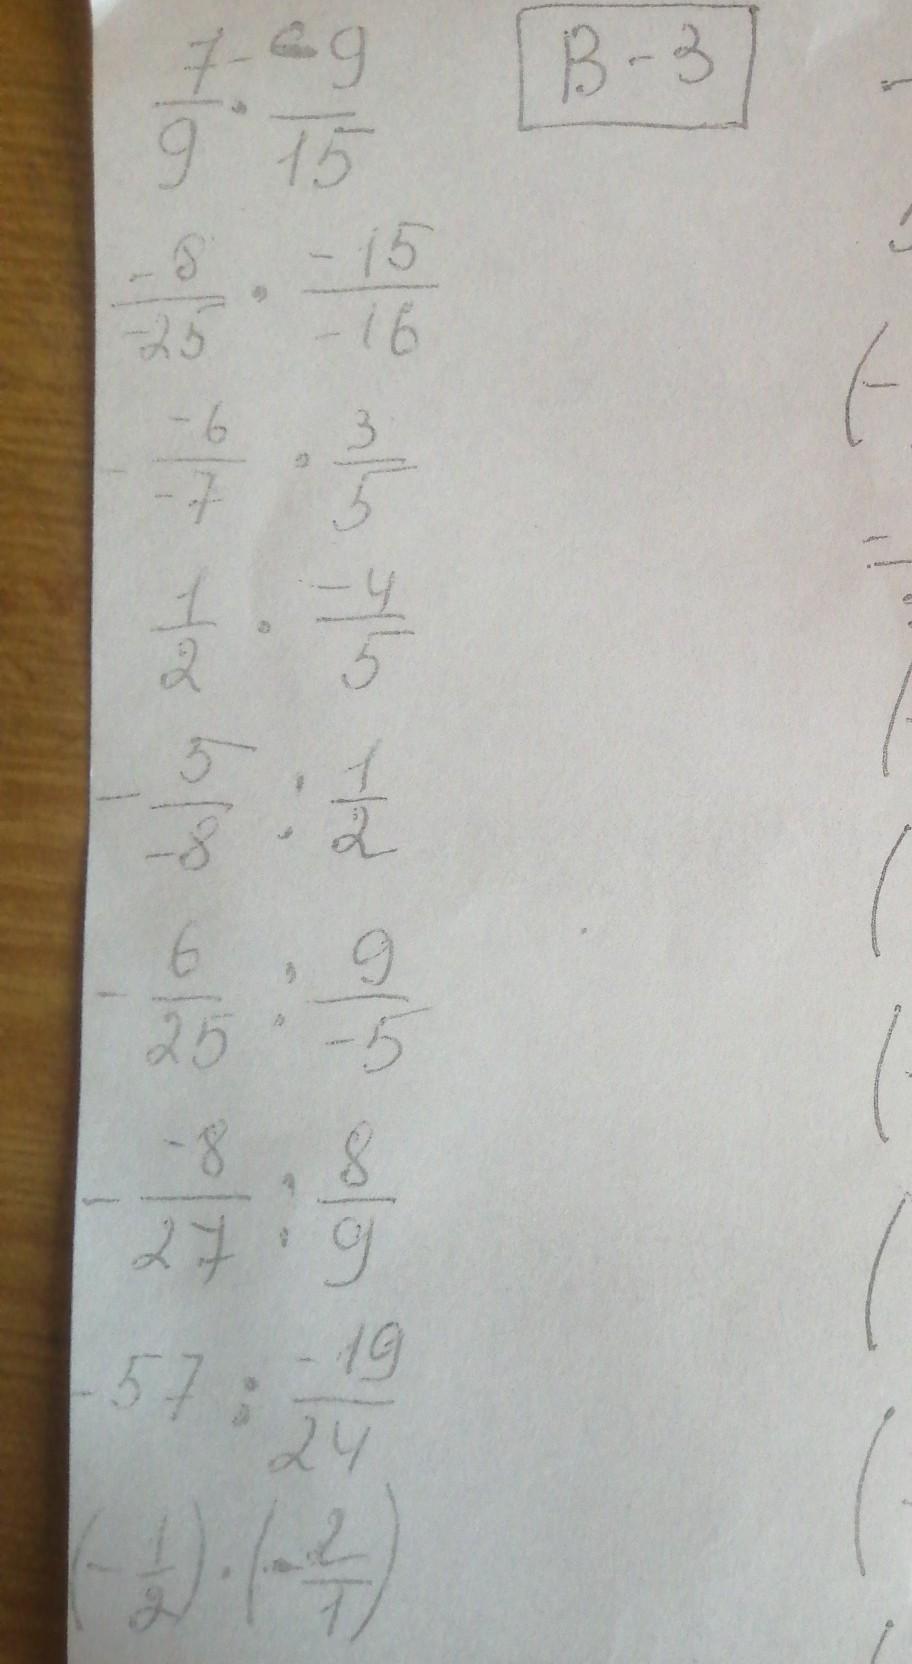 7/9 · -9/15
B-3
-8/-25 · -15/-16
- -6/-7 · 3/5
1/2 · -4/5
- 5/-8 : 1/2
- 6/25 : 9/-5
- -8/27 : 8/9
-57 : -19/24
(-1/2) · (-2/1)